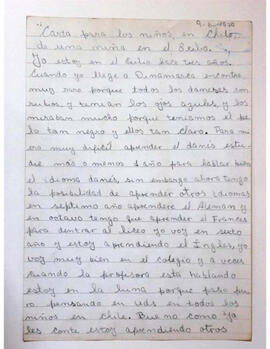 9-6-1980
"Carta para los niños, en Chile,
de una niña en el Exilio."
Yo estoy en el Exilio hace tres años.
Cuando yo llege a Dinamarca encontre
muy raro porque todos los daneses son
rubios y tenian los ojos azules, y los
miraban mucho porque teniamos el pe
lo tan negro y ellos tan claro. Para mi
era muy dificil aprender el danés estu
die mas o menos 1 año para hablar bien
el idioma danés, sin embargo ahora tengo
la posibilidad de aprender otros idiomas
en septimo año aprendere el Aleman y
en octavo tengo que aprender el Frances
para dentrar al liceo yo voy en sexto
año y estoy aprendiendo el Ingles, yo
voy muy bien en el colegio y a veces
cuando la profesora esta hablando
estoy en la luna porque paso pu
ro pensando en uds en todos los
niños en Chile. Bueno como ya
les conte estoy aprendiendo otros